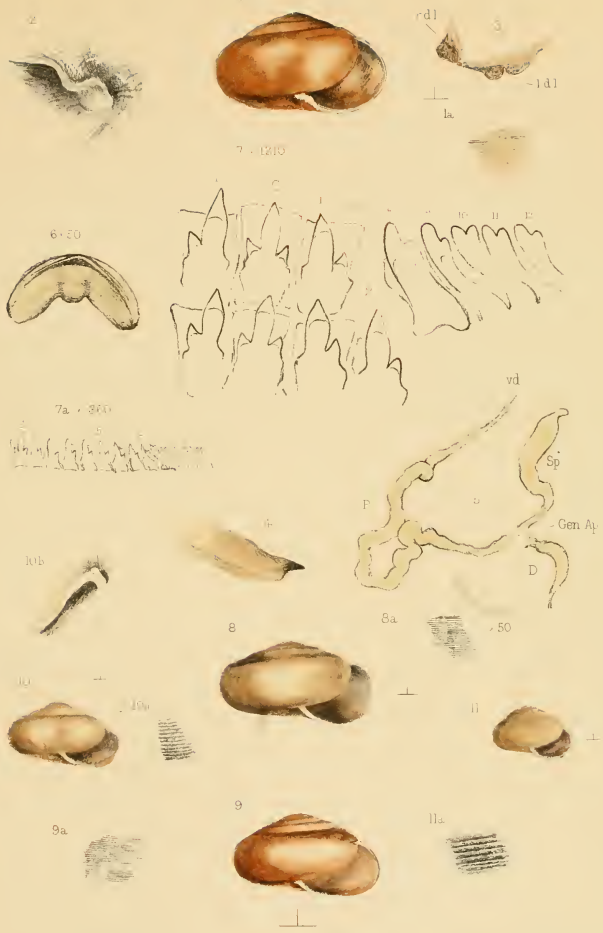 2
rdl
3
ldl
1a
7 × 1210
6 × 50
10
11
12
7a × 360
vd
Sp
P
5
Gen Ap
D
4
10b
8
8a
× 50
10
10a
11
9
9a
11a